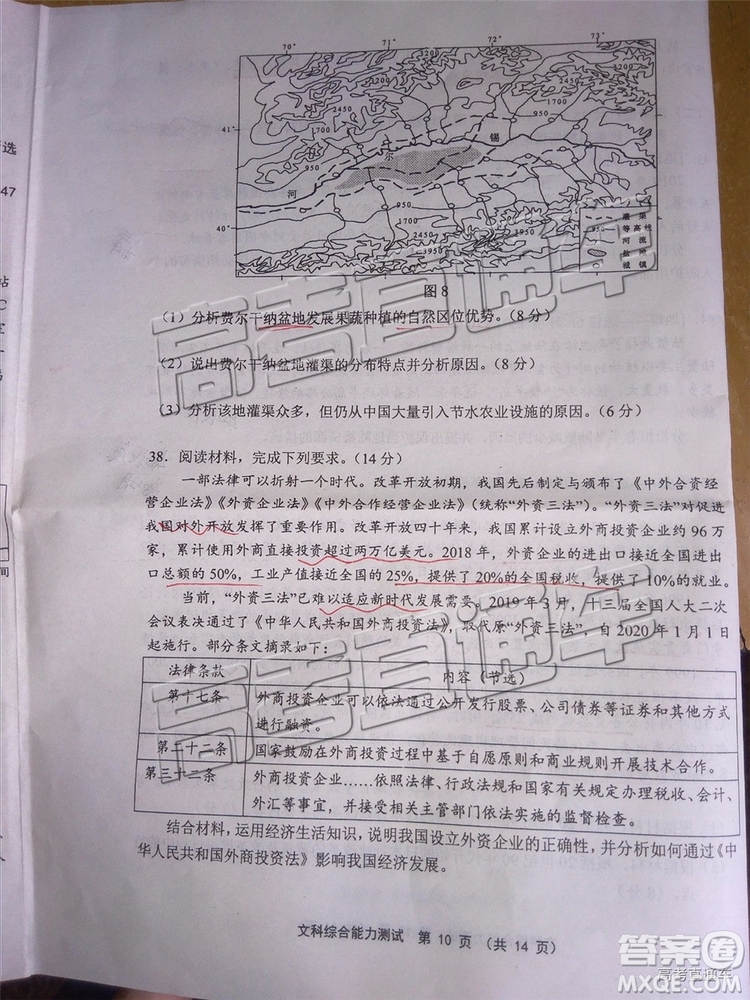 70° 71° 72° 73°
41°
40°
2450
1700
1200
950
1700
2450
950
1700
950
2450
锡
尔
河
950
950
1200
2450
3950
3950
2450
1200
灌渠
950 等高线
河流
盐
城镇
图8
选
47
站
C
间
(1)分析费尔干纳盆地发展果蔬种植的自然区位优势。(8分)
(2)说出费尔干纳盆地灌渠的分布特点并分析原因。(8分)
(3)分析该地灌渠众多,但仍从中国大量引入节水农业设施的原因。(6分)
38. 阅读材料,完成下列要求。(14分)
一部法律可以折射一个时代。改革开放初期,我国先后制定与颁布了《中外合资经
营企业法》《外资企业法》《中外合作经营企业法》(统称“外资三法”)。“外资三法”对促进
我国对外开放发挥了重要作用。改革开放四十年来,我国累计设立外商投资企业约 96 万
家,累计使用外商直接投资超过两万亿美元。2018 年,外资企业的进出口接近全国进出
口总额的 50%,工业产值接近全国的 25%,提供了 20%的全国税收,提供了 10%的就业。
当前,“外资三法”已难以适应新时代发展需要。2019 年 3 月,十三届全国人大二次
会议表决通过了《中华人民共和国外商投资法》,取代原“外资三法”,自 2020 年 1 月 1 日
起施行。部分条文摘录如下:
法律条款 内容(节选)
第十七条 外商投资企业可以依法通过公开发行股票、公司债券等证券和其他方式
进行融资。
第二十二条 国家鼓励在外商投资过程中基于自愿原则和商业规则开展技术合作。
第三十二条 外商投资企业……依照法律、行政法规和国家有关规定办理税收、会计、
外汇等事宜,并接受相关主管部门依法实施的监督检查。
结合材料,运用经济生活知识,说明我国设立外资企业的正确性,并分析如何通过《中
华人民共和国外商投资法》影响我国经济发展。
文科综合能力测试 第 10 页 (共 14 页)
高考直通车
高考直通车
答案圈
高考直通车
MXQE.COM